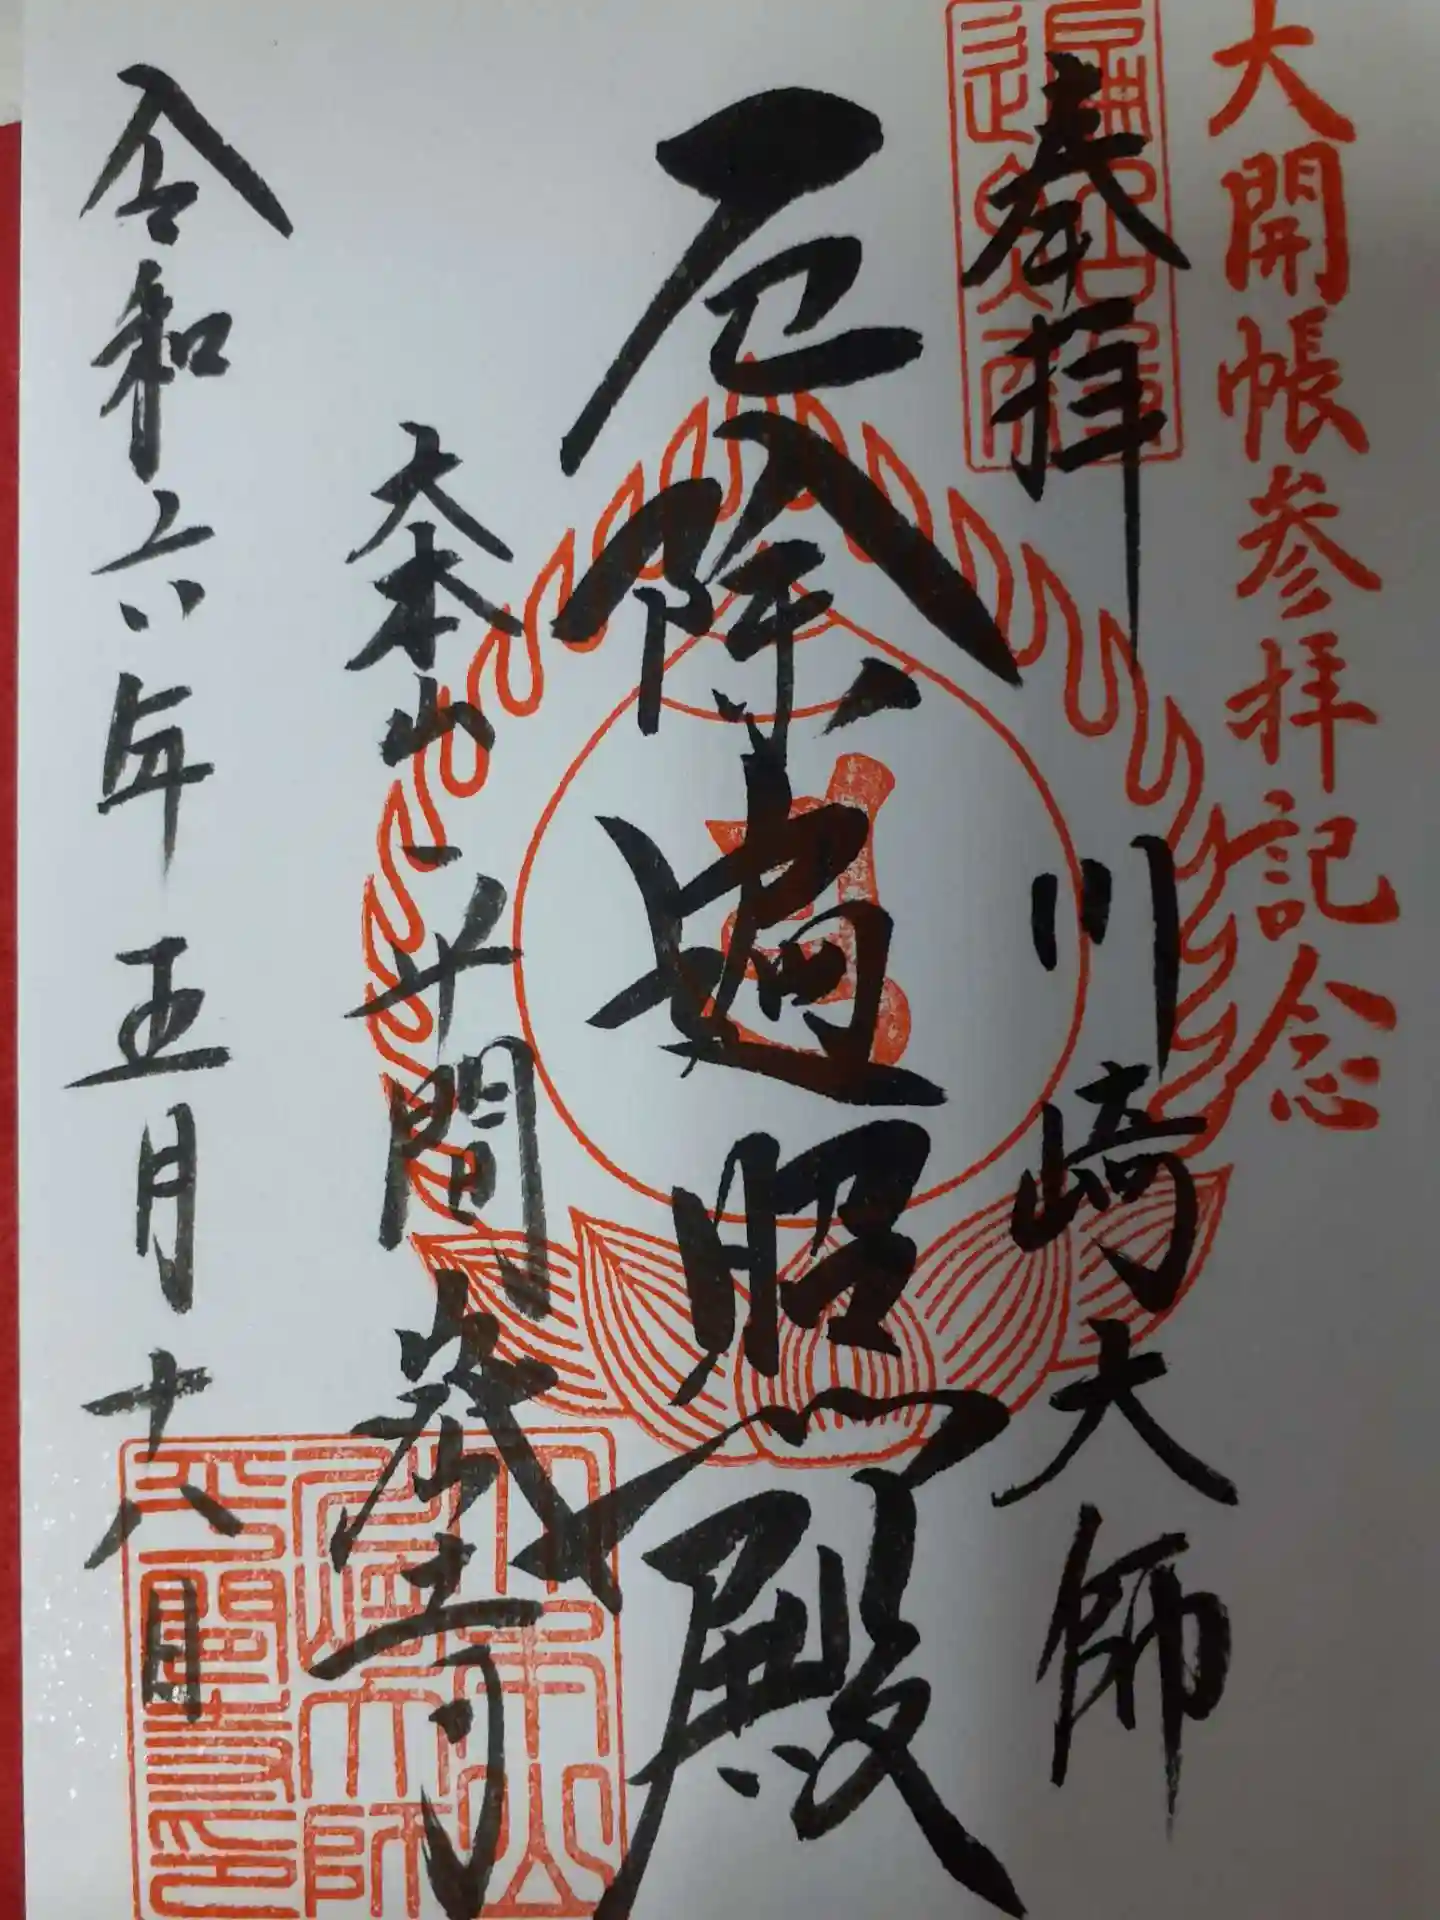 大開帳参拝記念
奉拝
川崎大師
厄除遍照殿
大本山平間寺
令和六年五月十八日